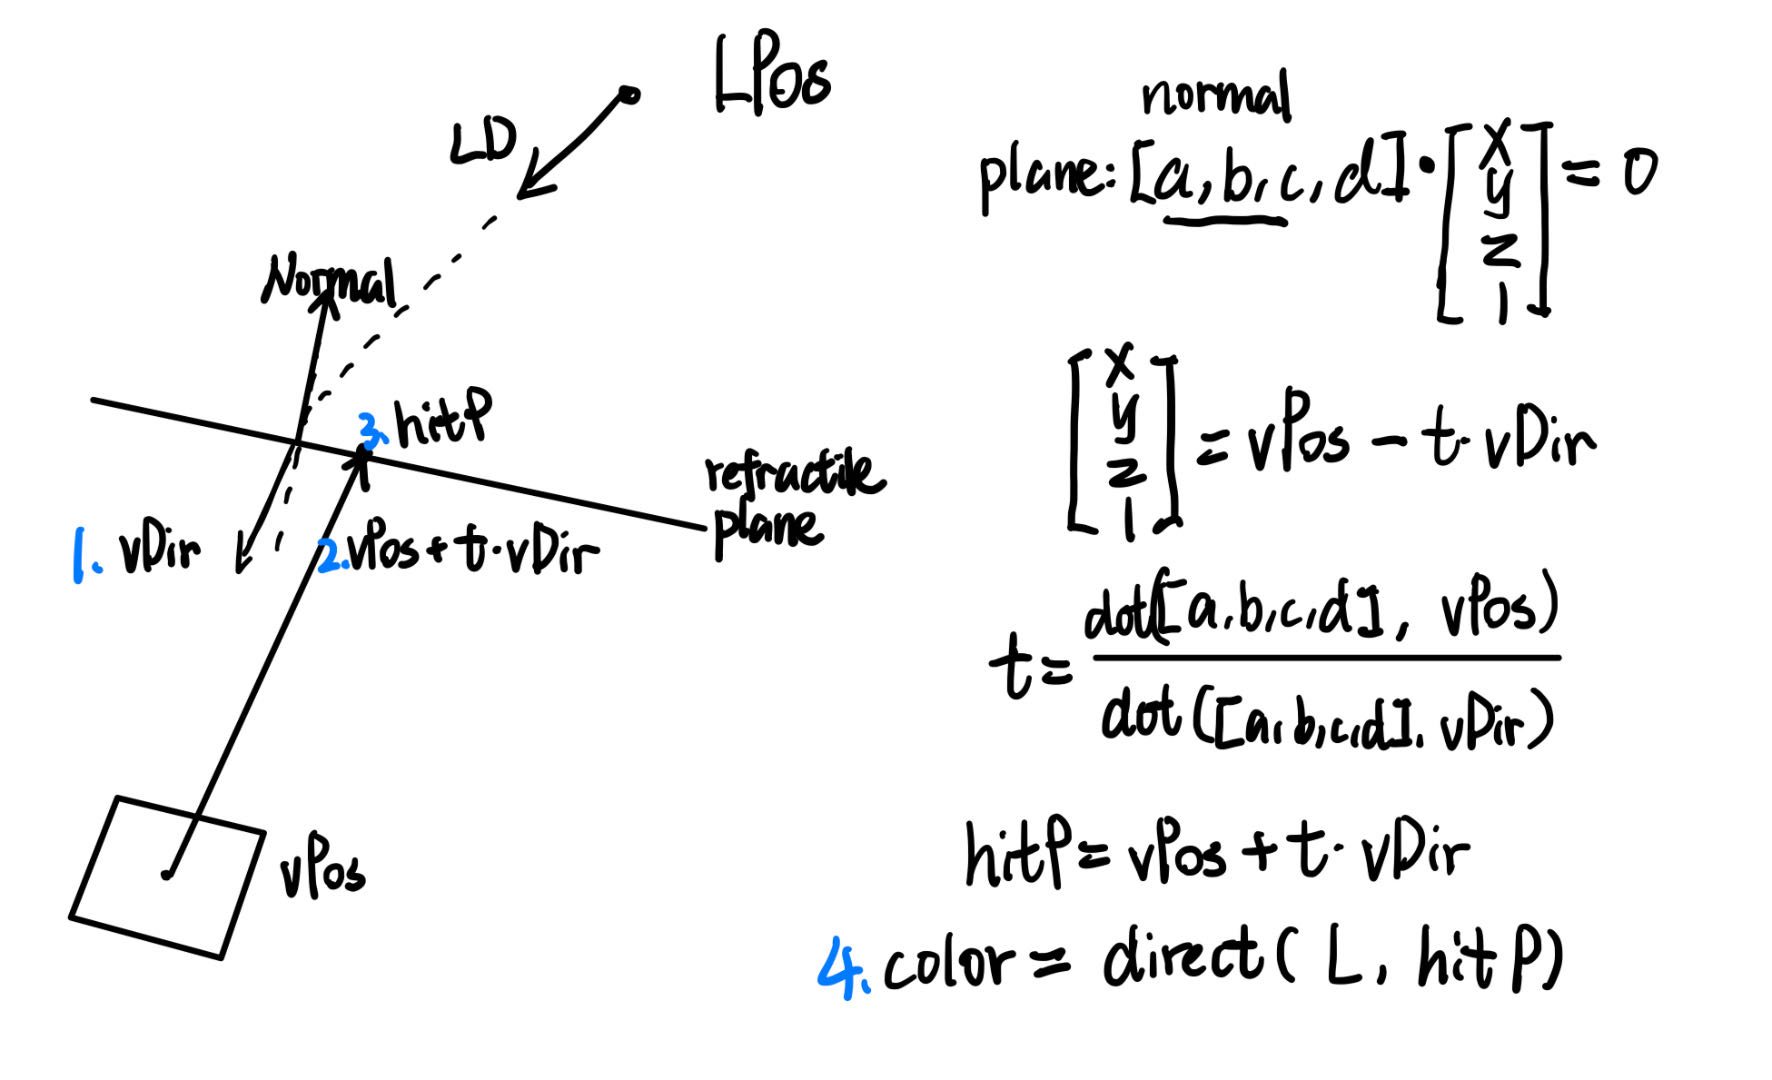 LPos
LD
Normal
3. hitP
refractile
plane
1. vDir
2. vPos + t · vDir
vPos
normal
plane: [a, b, c, d] · [x y z 1] = 0
[x y z 1] = vPos - t · vDir
t = dot([a, b, c, d], vPos)
dot([a, b, c, d]. vDir)
hitP = vPos + t · vDir
4. color = direct( L, hitP)